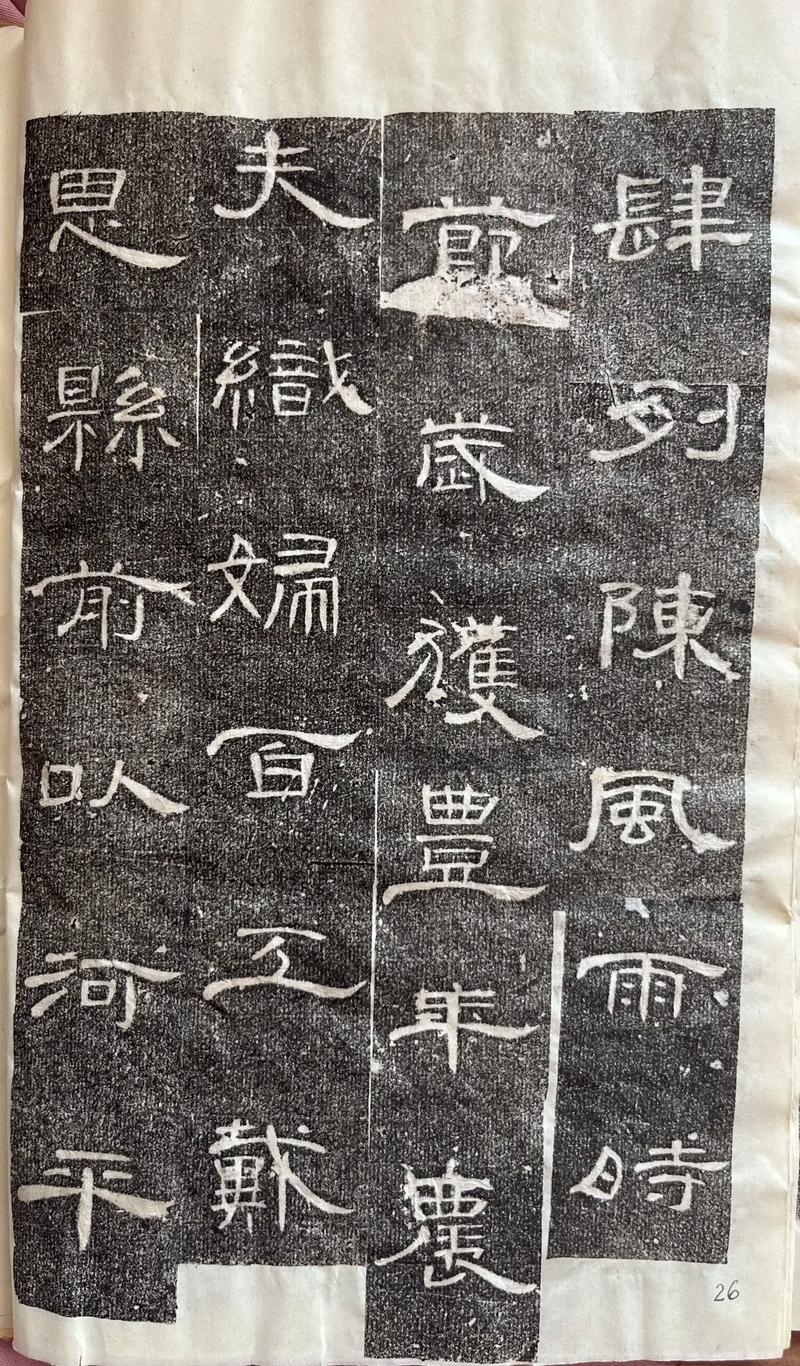 肆列陳風雨時
節歲獲豐年農
夫織婦百工戴
恩縣前以河平
26